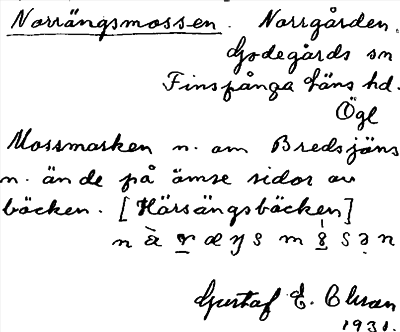 Norrängsmossen. Norrgården.
Godegårds sn
Finspånga läns hd.
Ögl
Mossmarken n. om Bredsjöns
n. ände på ömse sidor av
bäcken. [Härsängsbäcken]
Gustaf E. Olsson
1931.